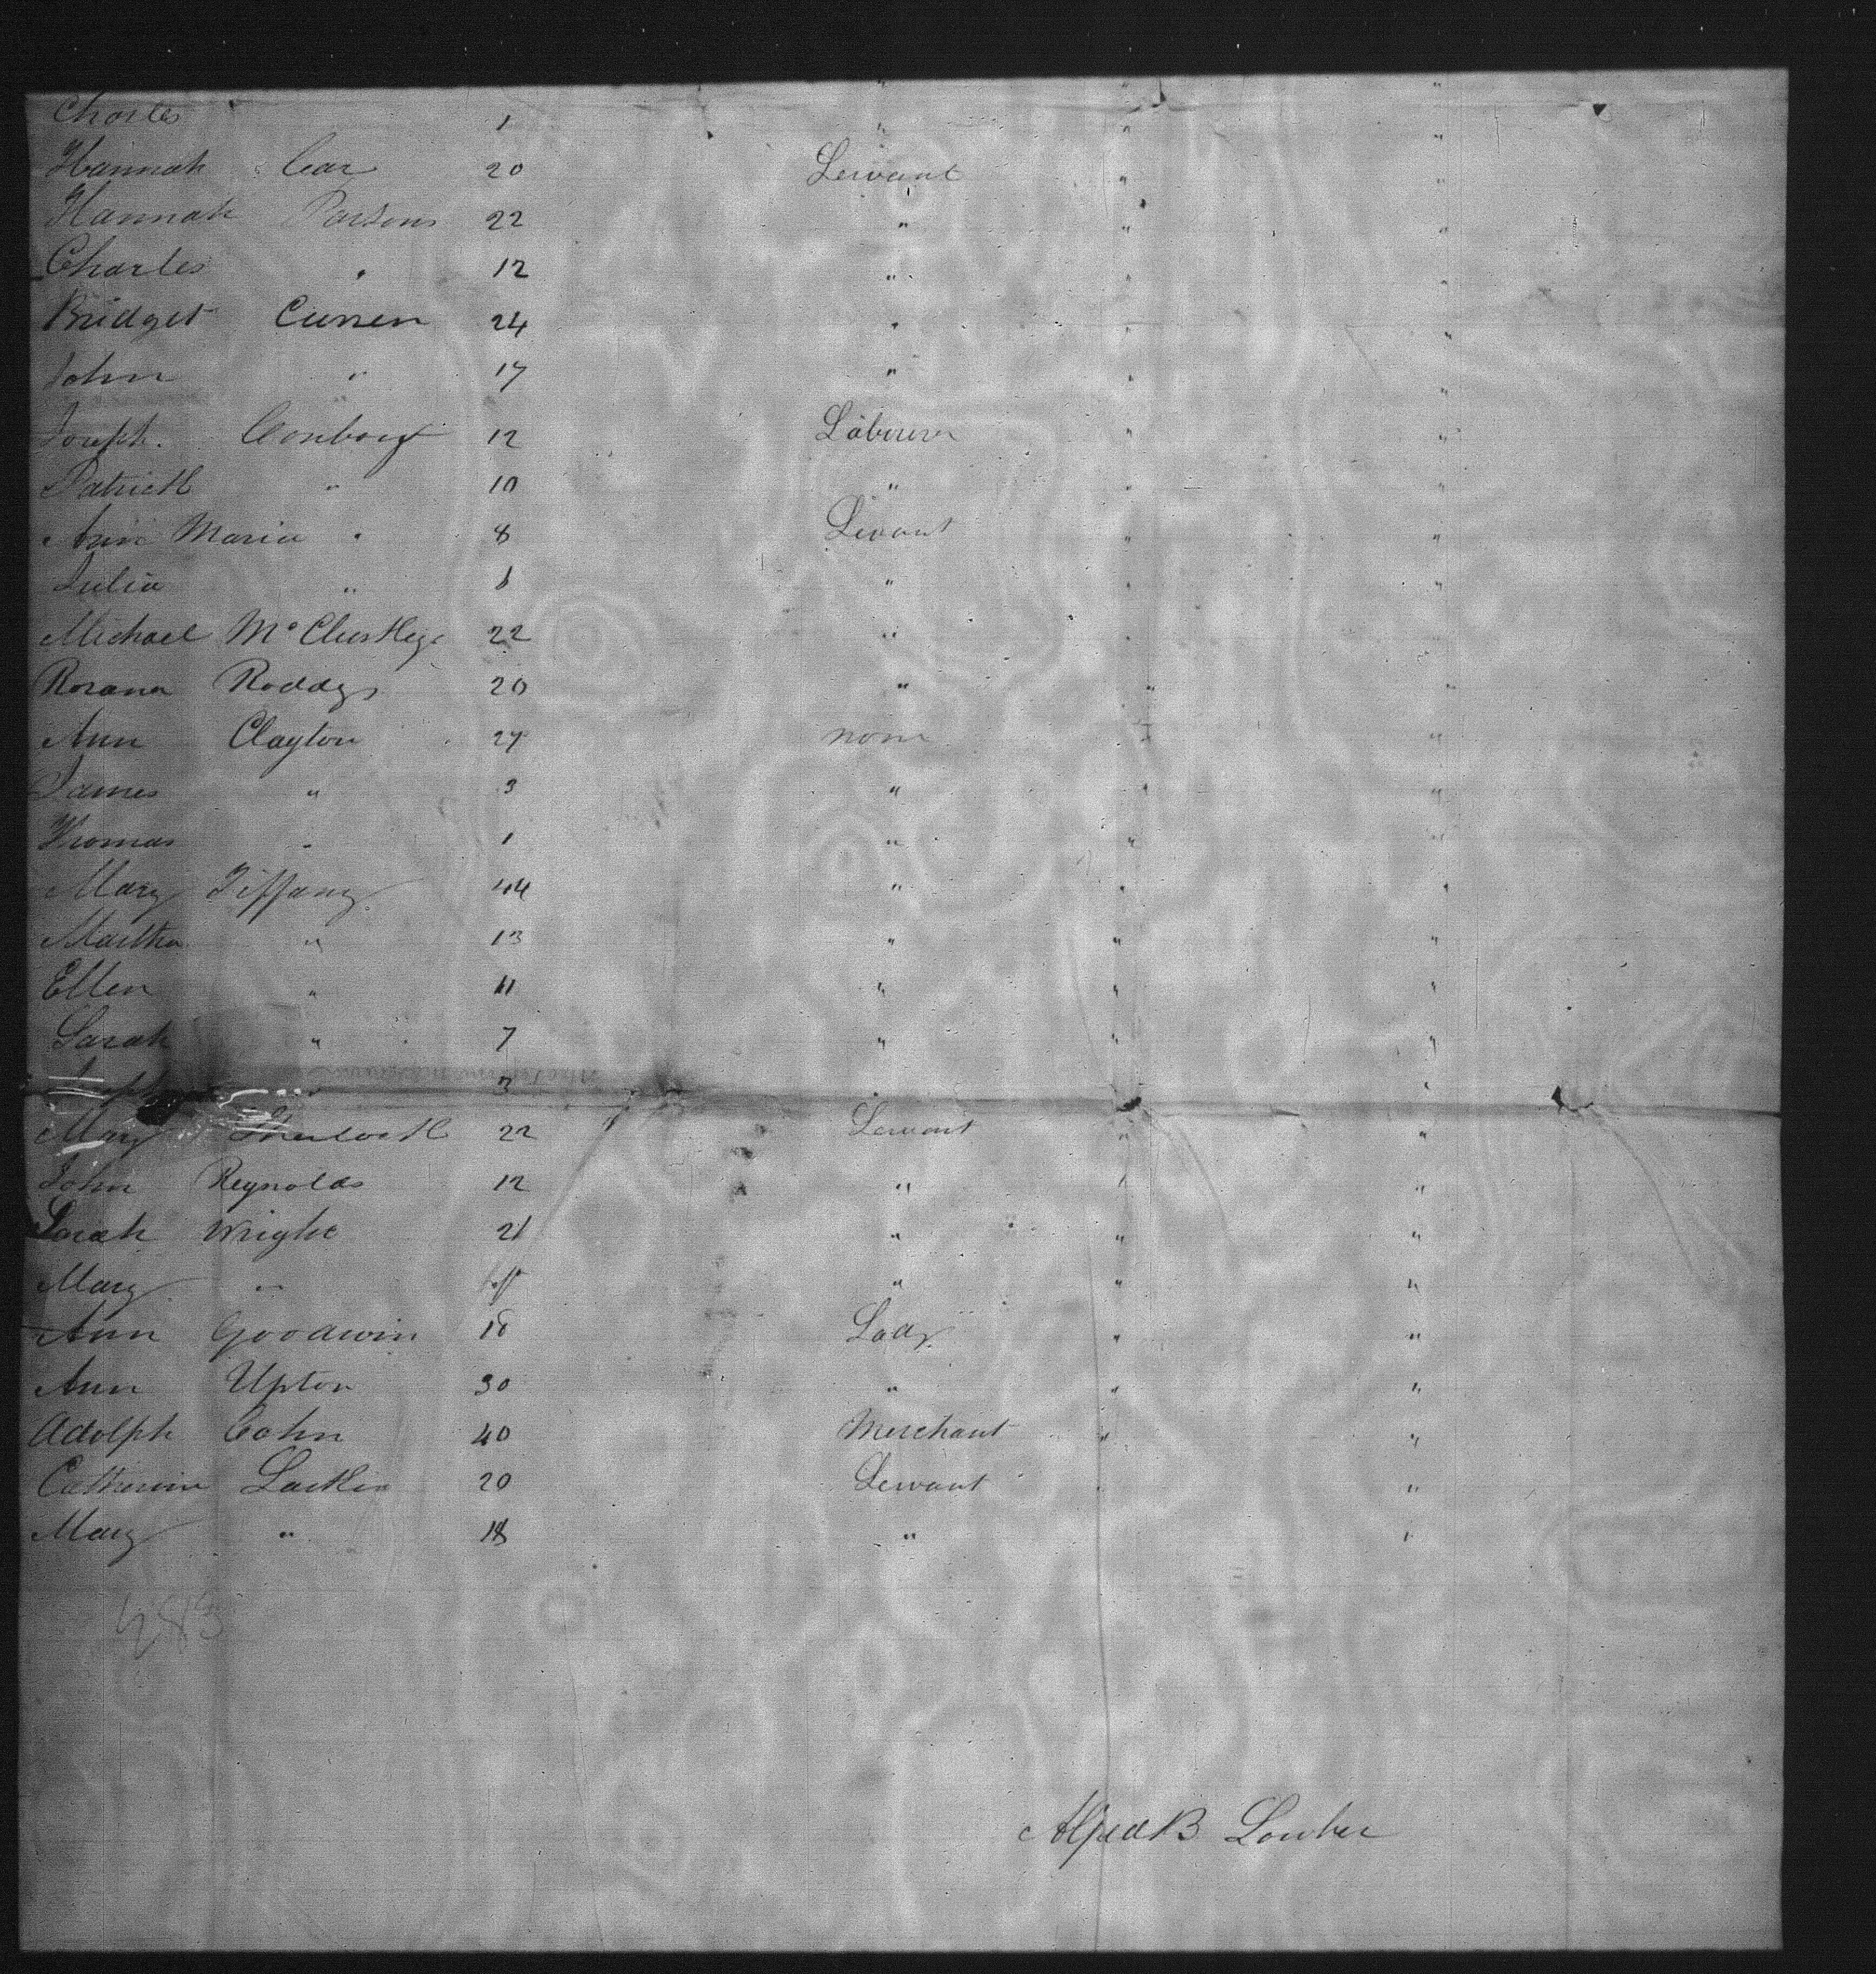 Charles 1 " " "
Hannah Car 20 Servant " "
Hannah Parsons 22 " " "
Charles " 12 " " "
Bridget Curren 24 " " "
John " 17 " " "
Joseph. Conboy 12 Laburer " "
Patrick " 10 " " "
Ann Maria " 8 Sevant " "
Julia " " " "
Michael McCluskey 22 " " "
Rosana Roddy 20 " " "
Ann Clayton 27 none " "
James " 3 " " "
Thomas " 1 " " "
Mary Tiffany 44 " " "
Martha " 13 " " "
Ellen " 11 " " "
Sarah " 7 " " "
" 3 " "
Mary 22 Servant " "
John Reynolds 12 " " "
Sarah Wright 21 " " "
Mary " " " "
Ann Goodwin 18 Lady " "
Ann Upton 30 " " "
Adolph Cohn 40 Merchant " "
Catherine Larkin 20 Servant " "
Mary " 18 " "
Alfred B Lowber